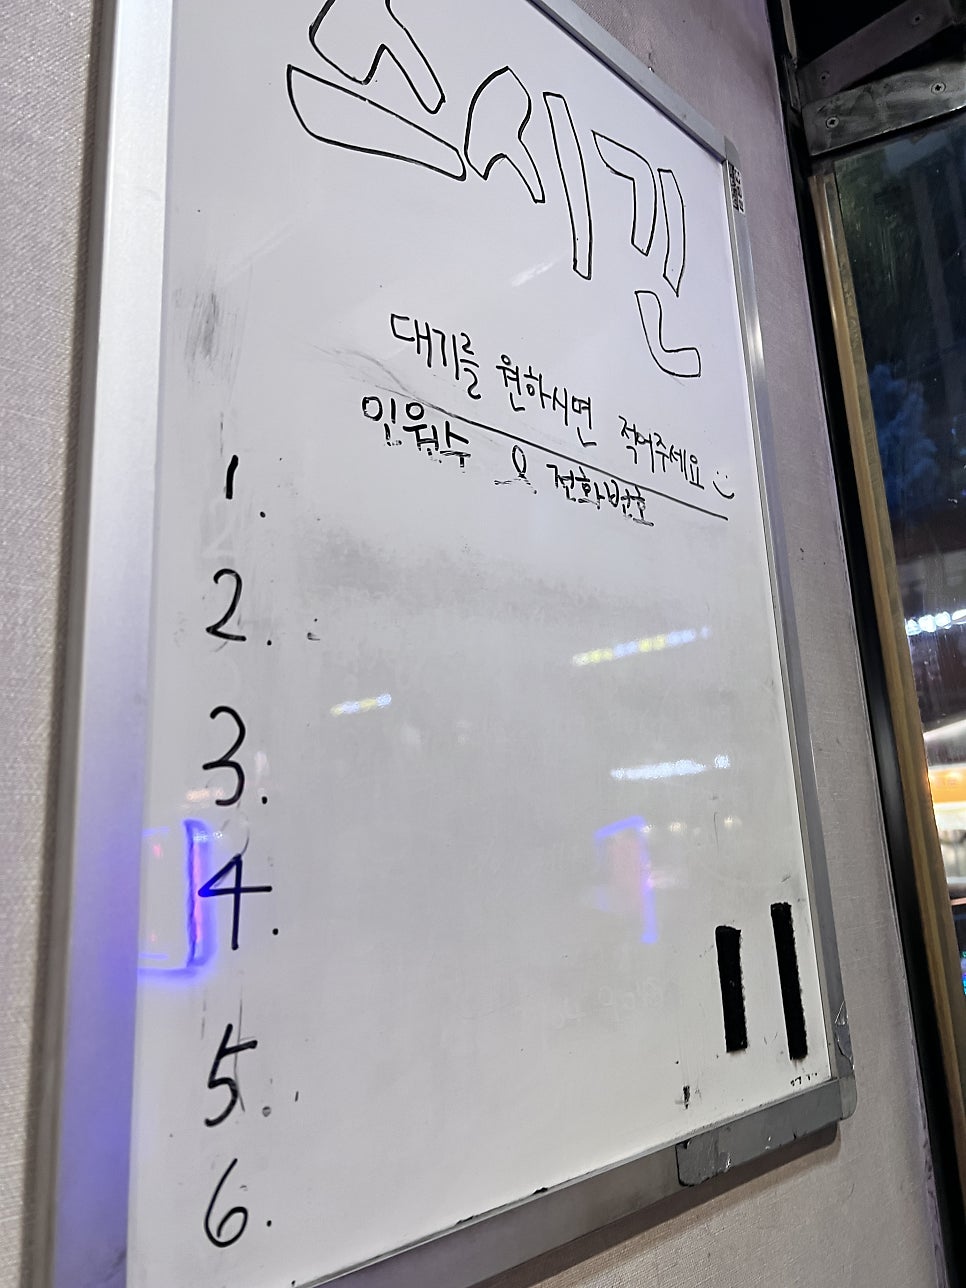 스시긴
대기를 원하시면 적어주세요
인원수 & 전화번호
1.
2.
3.
4.
5.
6.